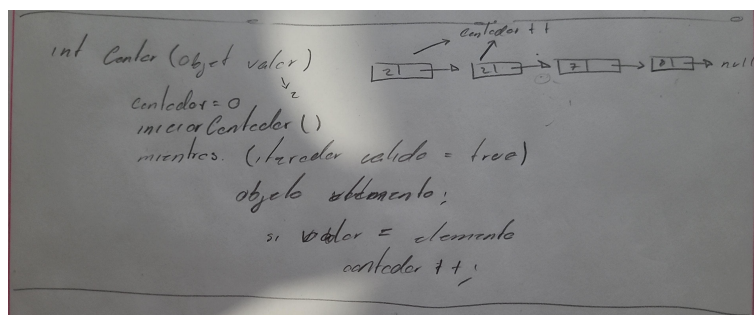 contador ++
int Contar (objet valor)
2
2
7
8
null
2
contador = 0
iniciar Contador ()
mientras. (iterador valido = true)
objeto elemento;
si valor = elemento
contador ++;